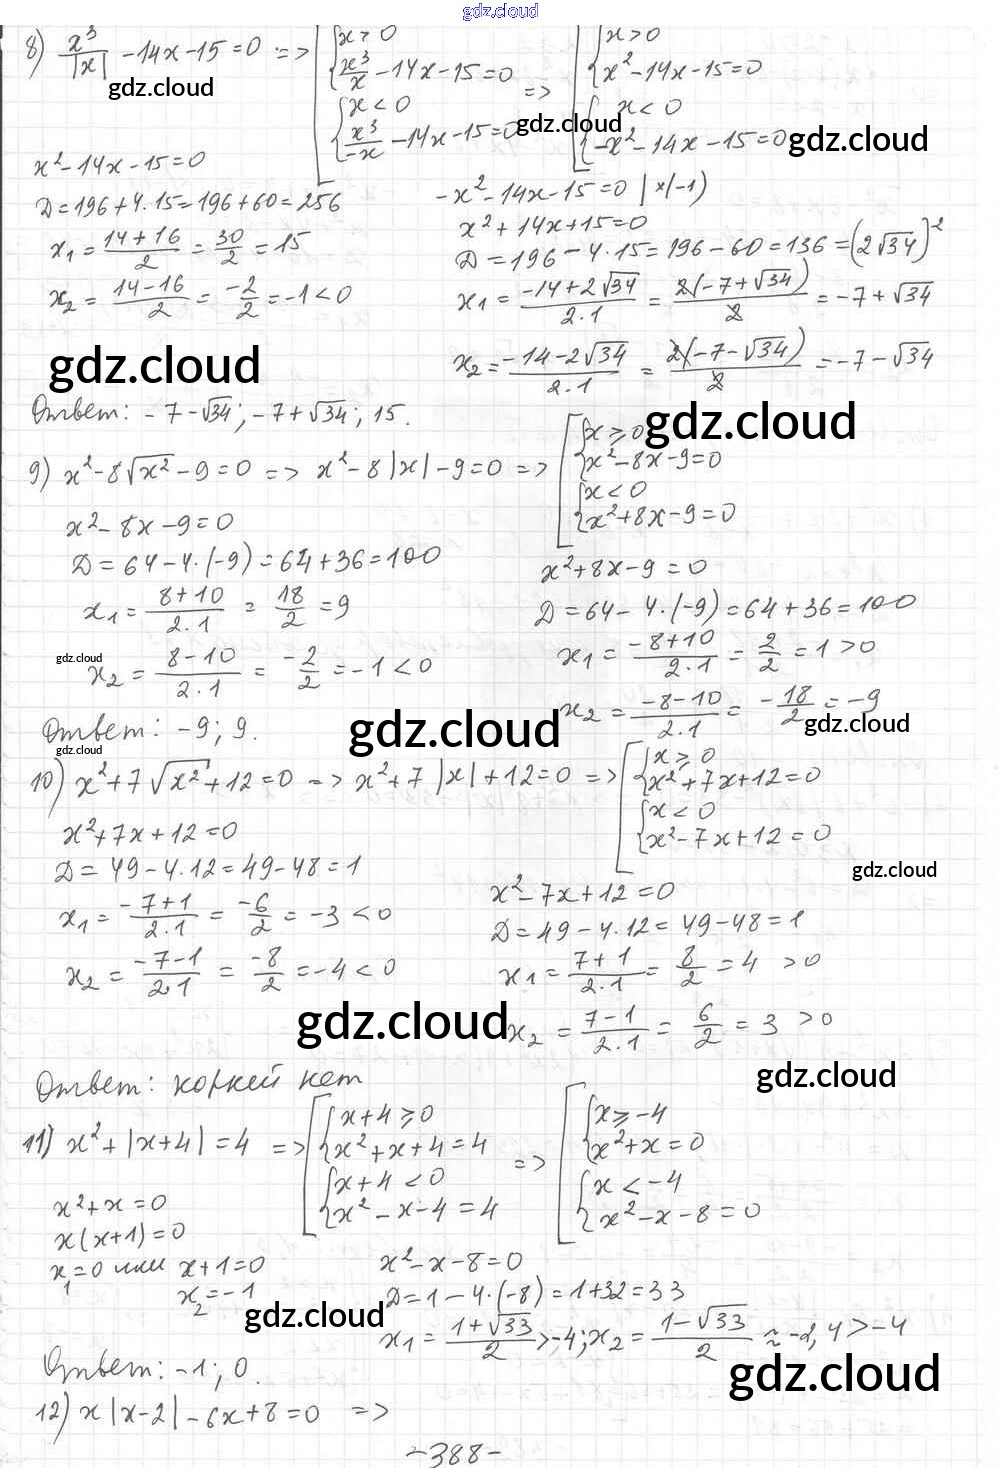 gdz.cloud
8) x³/|x| - 14x - 15 = 0 => [ { x > 0 ; x³/x - 14x - 15 = 0 ; { x < 0 ; x³/-x - 14x - 15 = 0 => [ { x > 0 ; x² - 14x - 15 = 0 ; { x < 0 ; -x² - 14x - 15 = 0
gdz.cloud
gdz.cloud
gdz.cloud
x² - 14x - 15 = 0
D = 196 + 4·15 = 196 + 60 = 256
x₁ = (14+16)/2 = 30/2 = 15
x₂ = (14-16)/2 = -2/2 = -1 < 0
-x² - 14x - 15 = 0 | ×(-1)
x² + 14x + 15 = 0
D = 196 - 4·15 = 196 - 60 = 136 = (2√34)²
x₁ = (-14+2√34)/(2·1) = 2(-7+√34)/2 = -7+√34
x₂ = (-14-2√34)/(2·1) = 2(-7-√34)/2 = -7-√34
gdz.cloud
Ответ: -7-√34; -7+√34; 15.
gdz.cloud
9) x² - 8√x² - 9 = 0 => x² - 8|x| - 9 = 0 => [ { x ≥ 0 ; x² - 8x - 9 = 0 ; { x < 0 ; x² + 8x - 9 = 0
x² - 8x - 9 = 0
D = 64 - 4·(-9) = 64 + 36 = 100
x₁ = (8+10)/(2·1) = 18/2 = 9
gdz.cloud
x₂ = (8-10)/(2·1) = -2/2 = -1 < 0
x² + 8x - 9 = 0
D = 64 - 4·(-9) = 64 + 36 = 100
x₁ = (-8+10)/(2·1) = 2/2 = 1 > 0
x₂ = (-8-10)/(2·1) = -18/2 = -9
gdz.cloud
Ответ: -9; 9.
gdz.cloud
gdz.cloud
10) x² + 7√x² + 12 = 0 => x² + 7|x| + 12 = 0 => [ { x ≥ 0 ; x² + 7x + 12 = 0 ; { x < 0 ; x² - 7x + 12 = 0
x² + 7x + 12 = 0
D = 49 - 4·12 = 49 - 48 = 1
x₁ = (-7+1)/(2·1) = -6/2 = -3 < 0
x₂ = (-7-1)/(2·1) = -8/2 = -4 < 0
gdz.cloud
x² - 7x + 12 = 0
D = 49 - 4·12 = 49 - 48 = 1
x₁ = (7+1)/(2·1) = 8/2 = 4 > 0
x₂ = (7-1)/(2·1) = 6/2 = 3 > 0
gdz.cloud
gdz.cloud
Ответ: корней нет
11) x² + |x+4| = 4 => [ { x+4 ≥ 0 ; x² + x + 4 = 4 ; { x+4 < 0 ; x² - x - 4 = 4 => [ { x ≥ -4 ; x² + x = 0 ; { x < -4 ; x² - x - 8 = 0
x² + x = 0
x(x+1) = 0
x₁ = 0 или x+1 = 0
x₂ = -1
x² - x - 8 = 0
D = 1 - 4·(-8) = 1+32 = 33
x₁ = (1+√33)/2 > -4; x₂ = (1-√33)/2 ≈ -2,4 > -4
gdz.cloud
gdz.cloud
Ответ: -1; 0.
12) x|x-2| - 6x + 8 = 0 =>
-388-